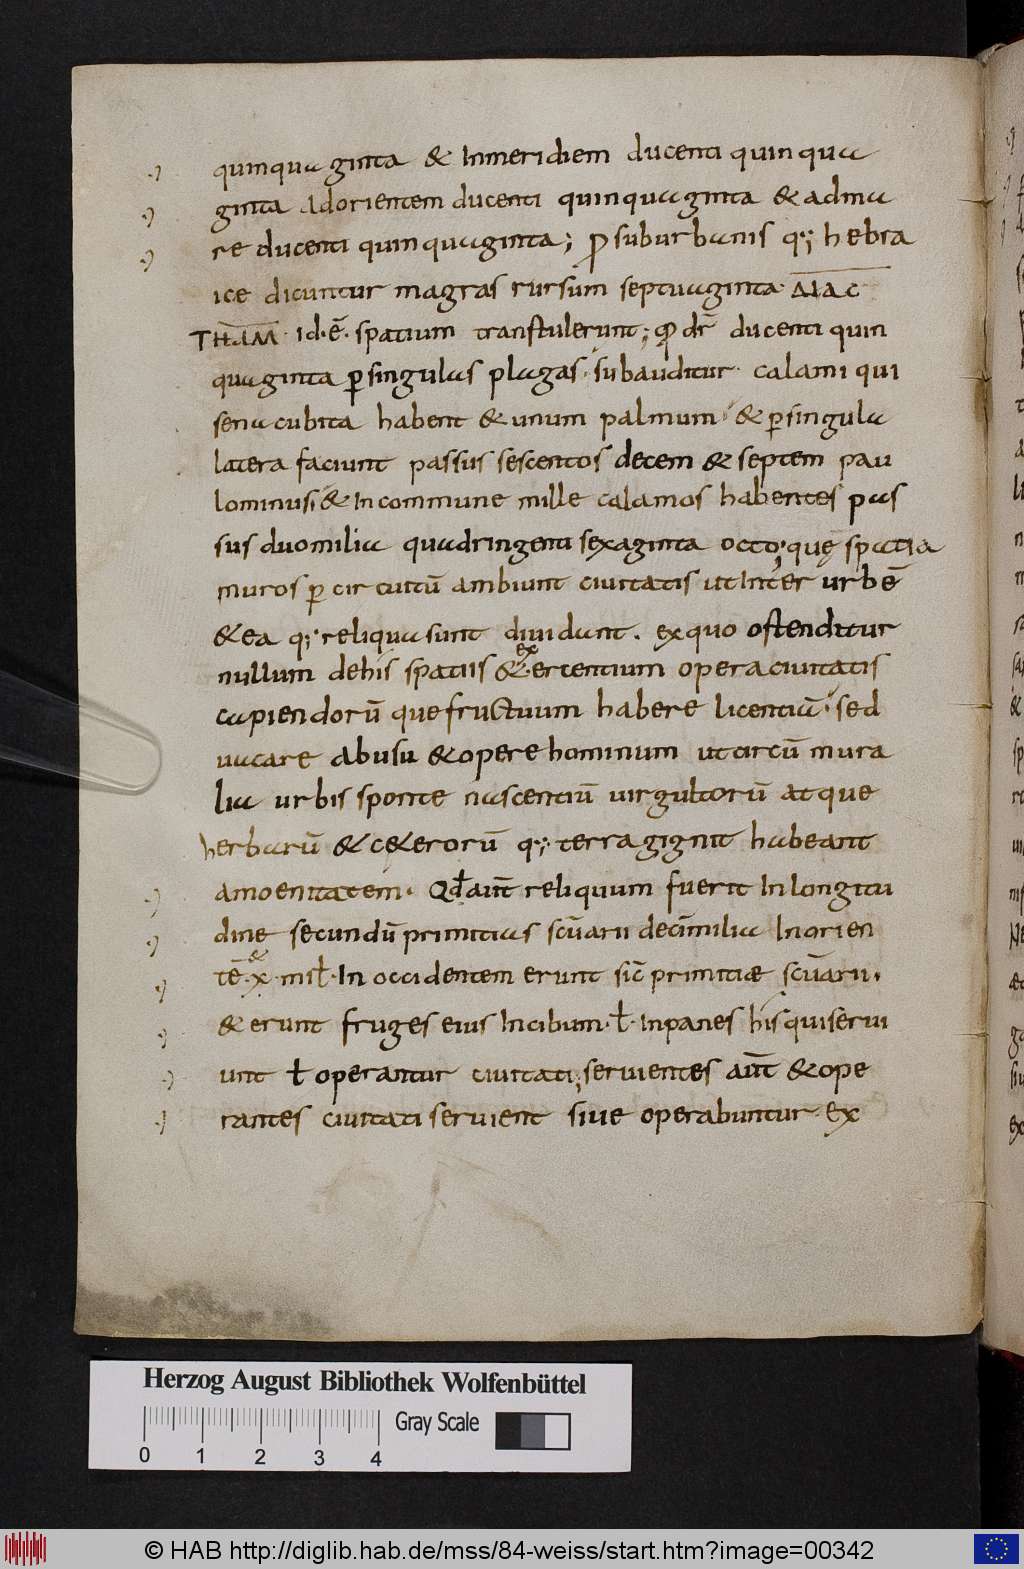 quinquaginta & Inmeridiem ducenti quinqua
ginta adorientem ducenti quinquaginta & adma
re ducenti quinquaginta; ꝓ suburbanis q;; hebra
ice dicuntur magras rursum septuaginta ΔΙΑϹ
ΤΗΑΜ · id·ē· spatium transtulerunt; Qd dr̄ ducenti quin
quaginta ꝑ singulas plagas · subauditur · calami qui
sena cubita habent & unum palmum · & ꝑ singula
latera faciunt passus sescentos decem & septem pau
lominus; & Incommune mille calamos habentes pas
sus duomilia quadringenti sexaginta octo; quę spatia
muros ꝑ circuitū ambiunt ciuitatis utInter urbē
& ea q; reliqua sunt diuidant. exquo ostenditur
nullum dehis spatiis &·ertentium opera ciuitatis
ex
cupiendorū que fructuum habere licentiā · sed
uacare abusu & opere hominum ut circū mura
lia urbis sponte nascentiū uirgultorū atque
herbarū & c&erorū q;; terra gignit habeant
amoenitatem · Qđ aut̄ reliquum fuerit Inlongitu
dine secundū primitius sc̄uarii decē milia In orien
tē · x · mil̄ · In occidentem erunt sic̄ primitiæ sc̄uarii ·
&
& erunt fruges eius Incibum · ł · Inpanes his quiserui
unt ł operantur ciuitati; seruientes aut̄ & ope
rantes ciuitati seruient siue operabuntur · ex
Herzog August Bibliothek Wolfenbüttel
Gray Scale
0 1 2 3 4
© HAB http://diglib.hab.de/mss/84-weiss/start.htm?image=00342